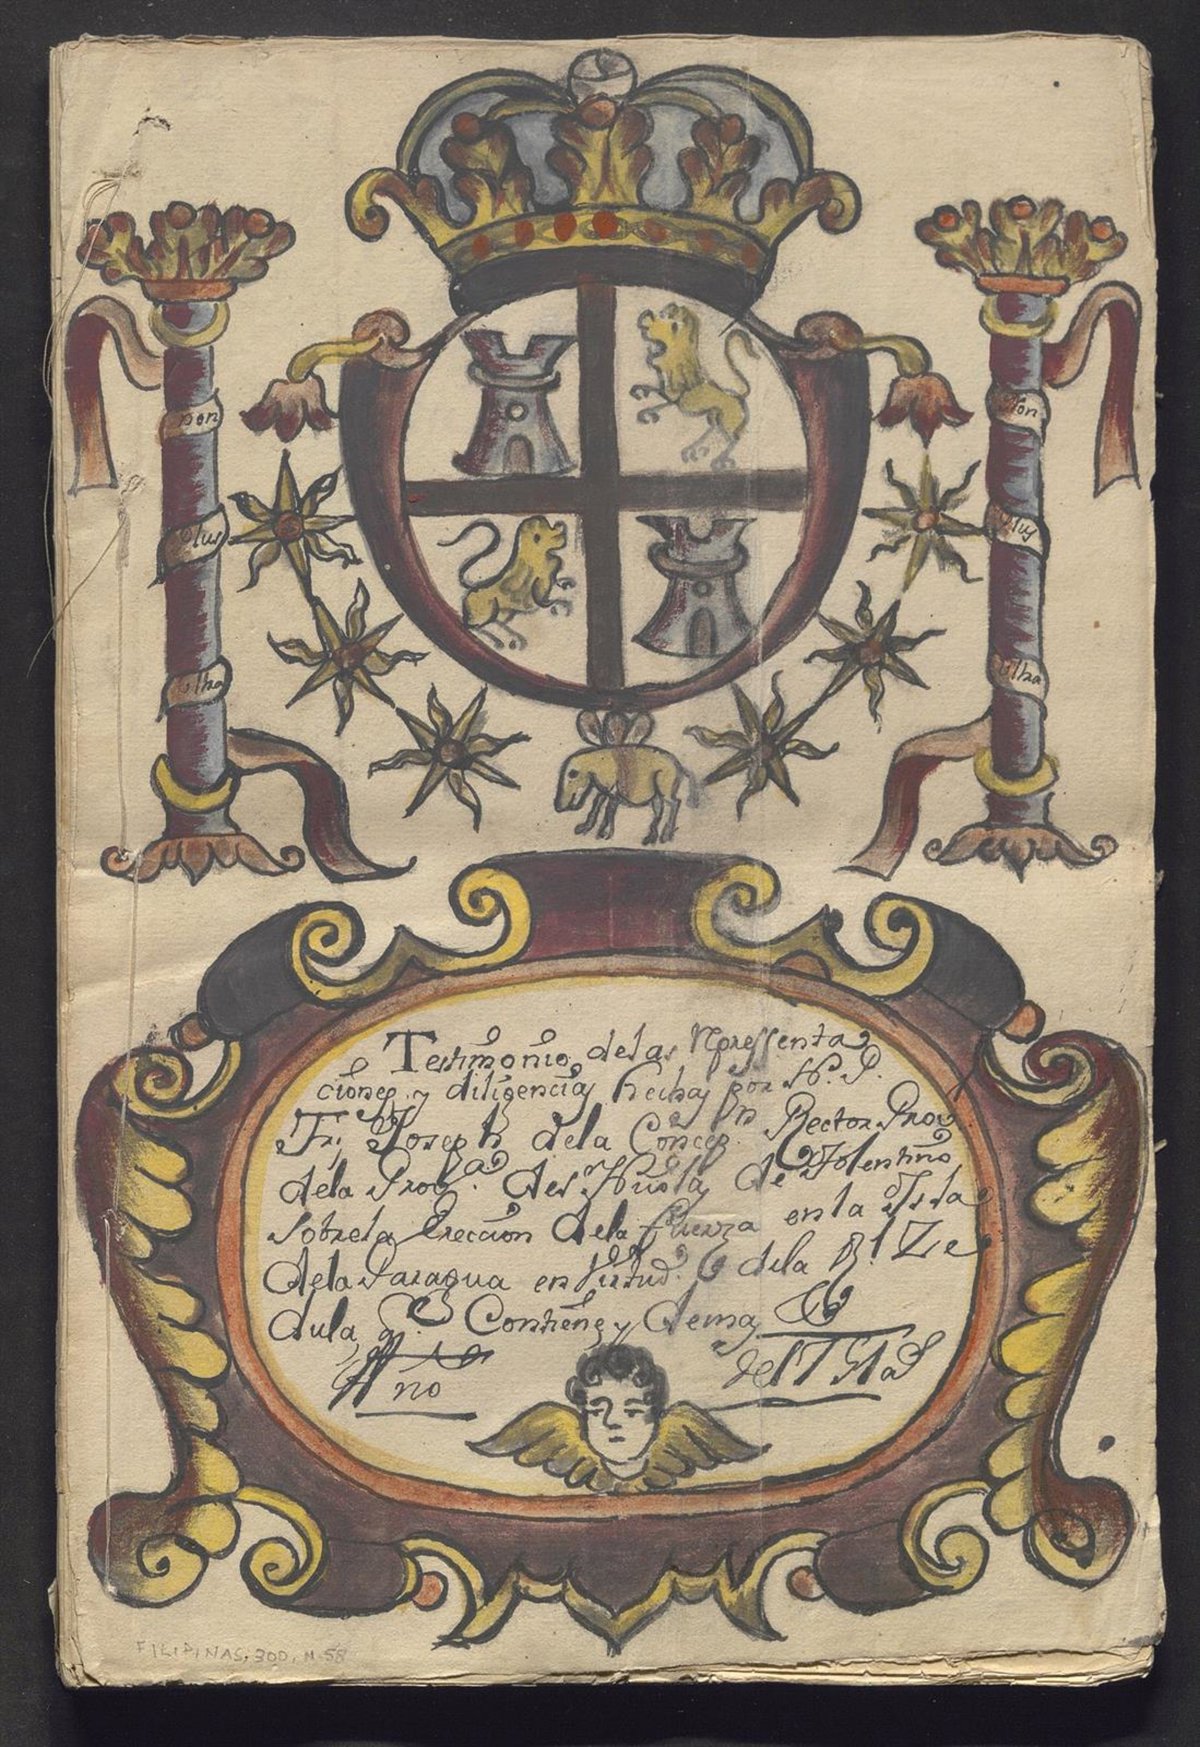 non
Plus
ultra
non
Plus
ultra
Testimonio delas Representa
ciones y diligencias hechas por N. P.
Fr, Joseph dela Concepn Rector Prov
dela Prova. de Sn Nicolas de Tolentino
Sobrela Ereccion dela fuerza en la Isla
dela Paragua en Virtud dela Rl Ze
dula, Contiene y demas
no
FILIPINAS, 300, N. 58